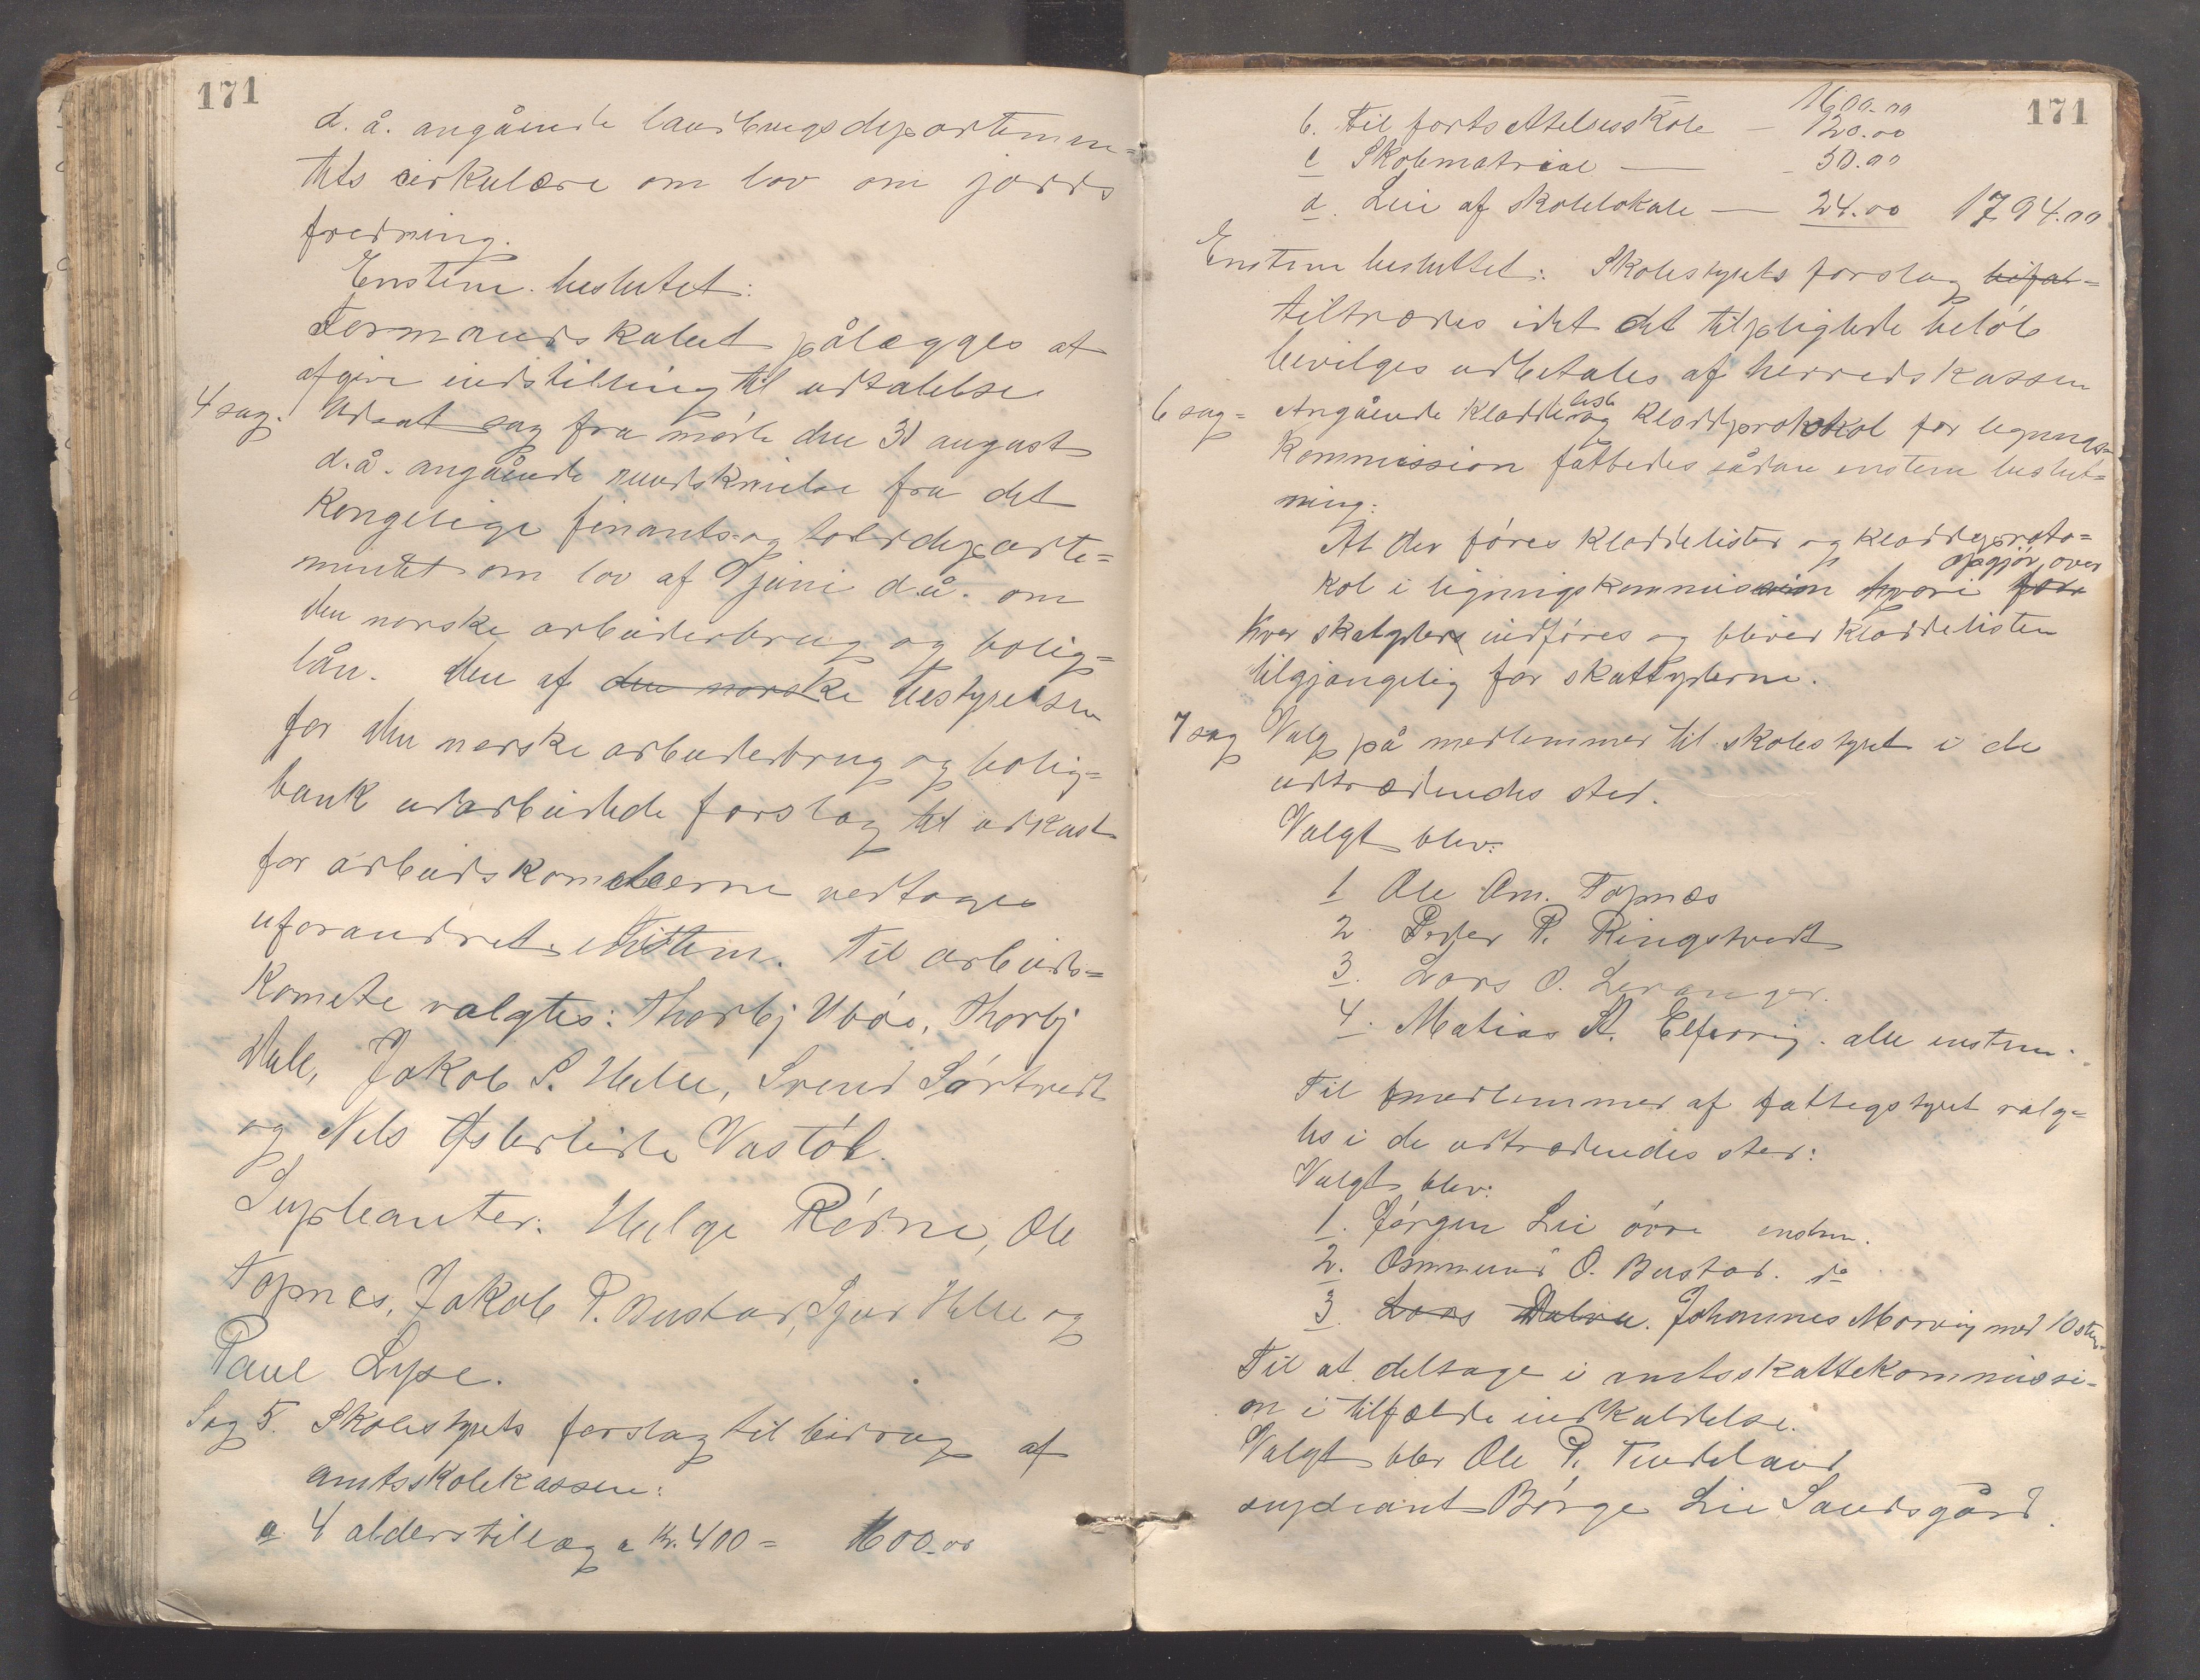 171
d. å. angående landbrugsdepartemen=
tets cirkulære om lov om jords
fredning.
Enstem. beslutet:
Formandskabet pålægges at
afgive indstilling til udtalelse
4 sag. Udsat sag fra møde den 31 august
d.å. angående rundskrivelse fra det
Kongelige finants- og tolddeparte=
mentet om lov af 9 juni d.å. om
den norske arbeiderbrug og bolig=
lån. Den af den norske bestyrelsen
for den norske arbeiderbrug og bolig=
bank udarbeidede forslag til udkast
for arbeidskomiteerne vedtages
uforandret enstem. Til arbeids=
komite valgtes: Thorbj Vbøe, Thorbj
Helle, Jakob S. Helle, Svend Sørtvedt
og Nels Østerleide Vastøl.
Supleanter: Helge Rødne, Ole
Topnes, Jakob P. Bustad, Sjur Helle og
Paul Lyse.
Sag 5. Skolestyrets forslag til bidrag af
amtsskolekassen:
a 4 alderstillæg a Kr. 400 = 1600.00
171
1600.00
b. Til fortsættelsesskole — 120.00
c Skolematriæl — 50.00
d. Leie af skolelokale — 24.00 1794.00
Enstem besluttet: Skolestyrets forslag bifal=
tiltrædes idet det tilpligtede beløb
bevilges udbetales af herredskassen
6 sag = Angående kladdeliste og kladdprotokol for lignings=
kommission fattedes sådan enstem beslut=
ning:
At der føres kladdelister og kladdeproto=
opgjør over
kol i ligningskommission hvori for
hver skatyder indføres og bliver kladdelisten
tilgjængelig for skattyderne.
7 sag Valg på medlemmer til skolestyret i de
udtrædendes sted.
Valgt blev:
1 Ole Om. Topnæs
2 Peder P. Ringstvedt
3. Lars O. Leranger.
4. Matias A. Elfarvig. alle enstem.
Til medlemmer af fattigstyret valg=
tes i de udtrædendes sted:
Valgt blev:
1. Jørgen Lie øvre enstem.
2. Osmund O. Bustad. do
3. Lars Dalva. Johannes Morvig med 10 stem.
Til at deltage i amtsskattekommissi=
on i tilfælde indkaldelse.
Valgt blev Ole P. Tindeland
supleant Børge Lie Sandsgård.